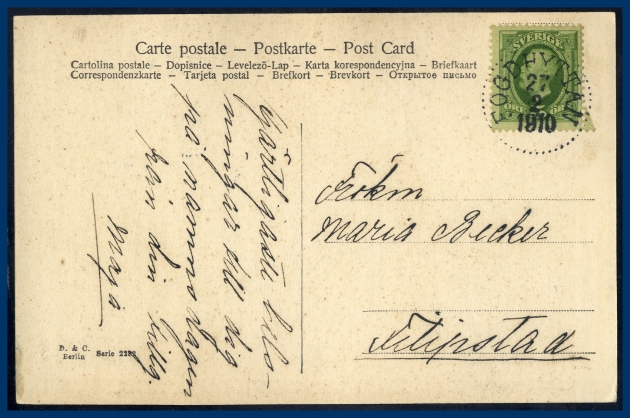 Carte postale – Postkarte – Post Card
Cartolina postale – Dopisnice – Levelező-Lap – Karta korespondencyjna – Briefkaart
Correspondenzkarte – Tarjeta postal – Brefkort – Brevkort – Открытое письмо
SVERIGE
27
2
1910
Hjärtligaste
till dig
på namnsdagen
från din
Maja
Frökn
Maria Becker
Filipstad
D. & C.
Berlin Serie 2282